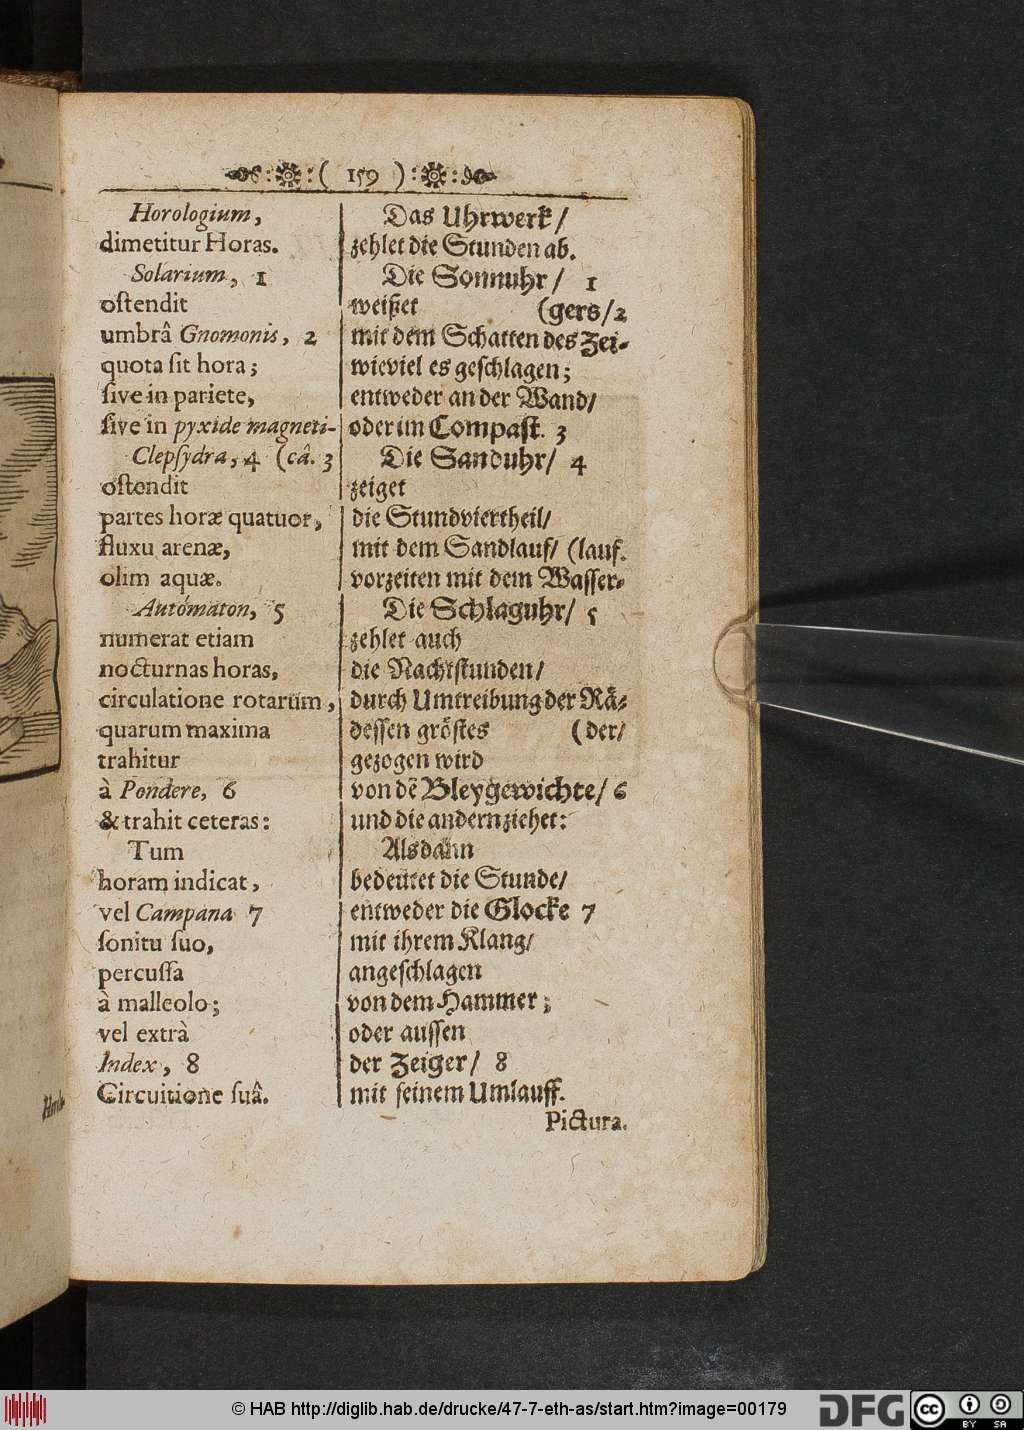 ( 159 )
Horologium,
dimetitur Horas.
Solarium, 1
oſtendit
umbrâ Gnomonis, 2
quota ſit hora;
ſive in pariete,
ſive in pyxide magneti-
Clepſydra, 4 (câ. 3
oſtendit
partes horæ quatuor,
fluxu arenæ,
olim aquæ.
Autómaton, 5
numerat etiam
nocturnas horas,
circulatione rotarum,
quarum maxima
trahitur
à Pondere, 6
& trahit ceteras:
Tum
horam indicat,
vel Campana 7
ſonitu ſuo,
percuſſa
à malleolo;
vel extrà
Index, 8
Circuitione ſuâ.
Das Uhrwerk/
zehlet die Stunden ab.
Die Sonnuhr/ 1
weiſet (gers/2
mit dem Schatten des Zei-
wieviel es geſchlagen;
entweder an der Wand/
oder im Compaſt. 3
Die Sanduhr/ 4
zeiget
die Stundviertheil/
mit dem Sandlauf/ (lauf.
vorzeiten mit dem Waſſer-
Die Schlaguhr/ 5
zehlet auch
die Nachtſtunden/
durch Umtreibung der Rä-
deſſen gröſtes (der/
gezogen wird
von dẽ Bleygewichte/ 6
und die andern ziehet:
Alsdann
bedeutet die Stunde/
entweder die Glocke 7
mit ihrem Klang/
angeſchlagen
von dem Hammer;
oder auſſen
der Zeiger/ 8
mit ſeinem Umlauff.
Pictura.
© HAB http://diglib.hab.de/drucke/47-7-eth-as/start.htm?image=00179
DFG
cc
BY SA